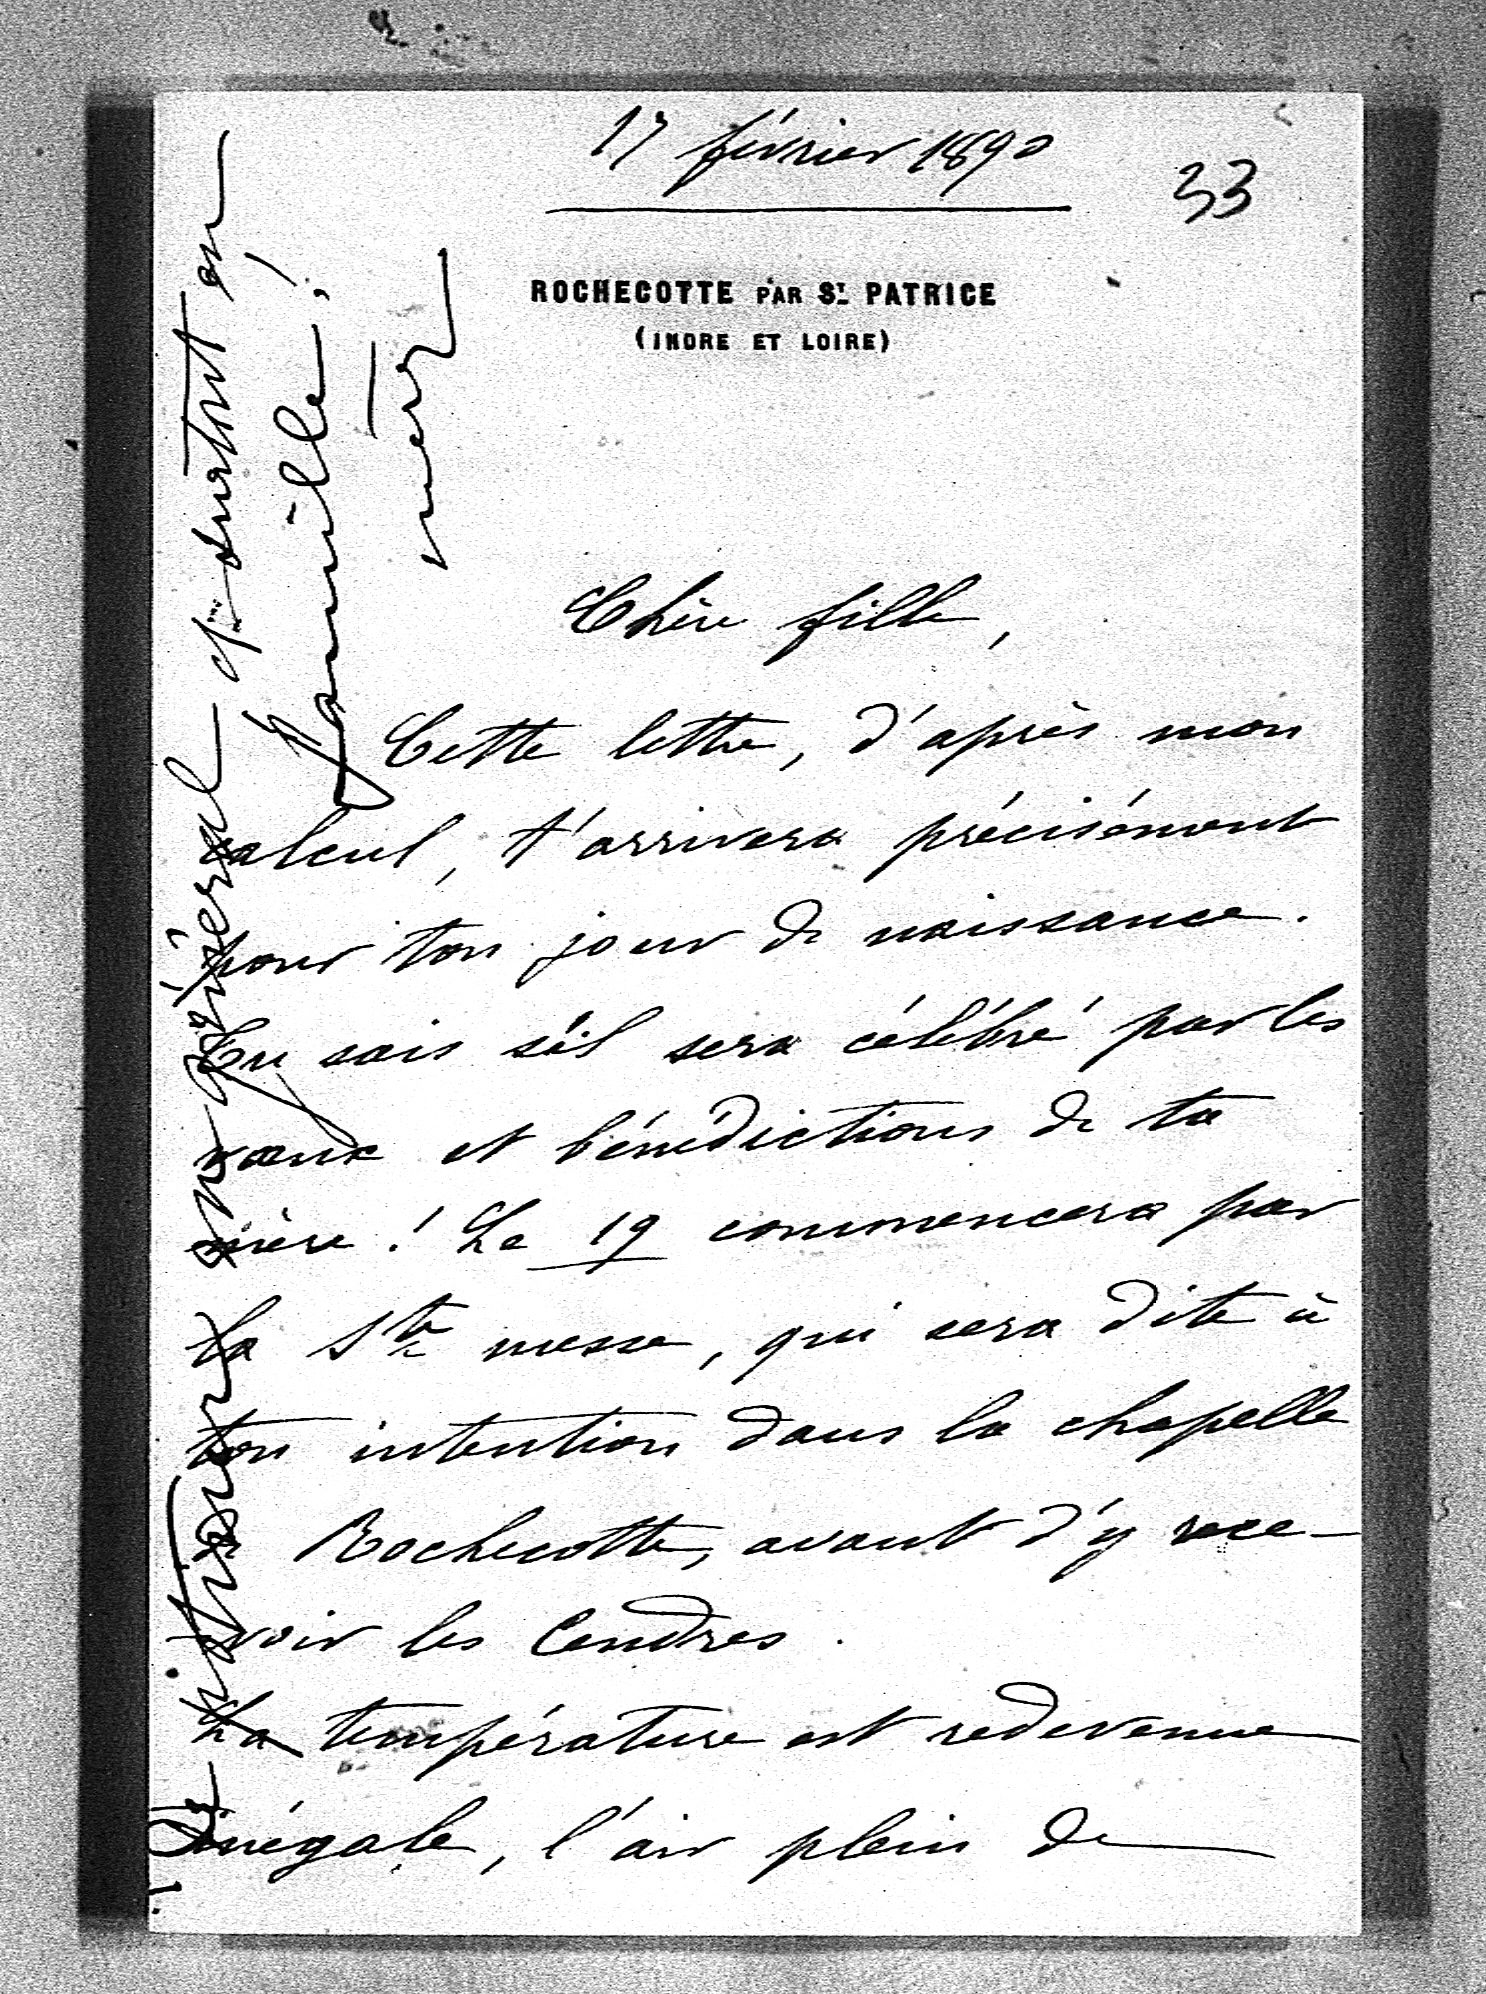 17 février 1890
33
ROCHECOTTE PAR ST PATRICE
(INDRE ET LOIRE)
Chère fille,
Cette lettre, d'après mon
calcul, t'arrivera précisément
pour ton jour de naissance.
Tu sais s'il sera célébré par les
vœux et bénédictions de ta
mère ! Le 19 commencera par
la Ste messe, qui sera dite à
ton intention dans la chapelle
Rochecotte, avant d'y rece-
voir les Cendres.
La température est redevenue
inégale, l'air plein de
en général et surtout en
famille !